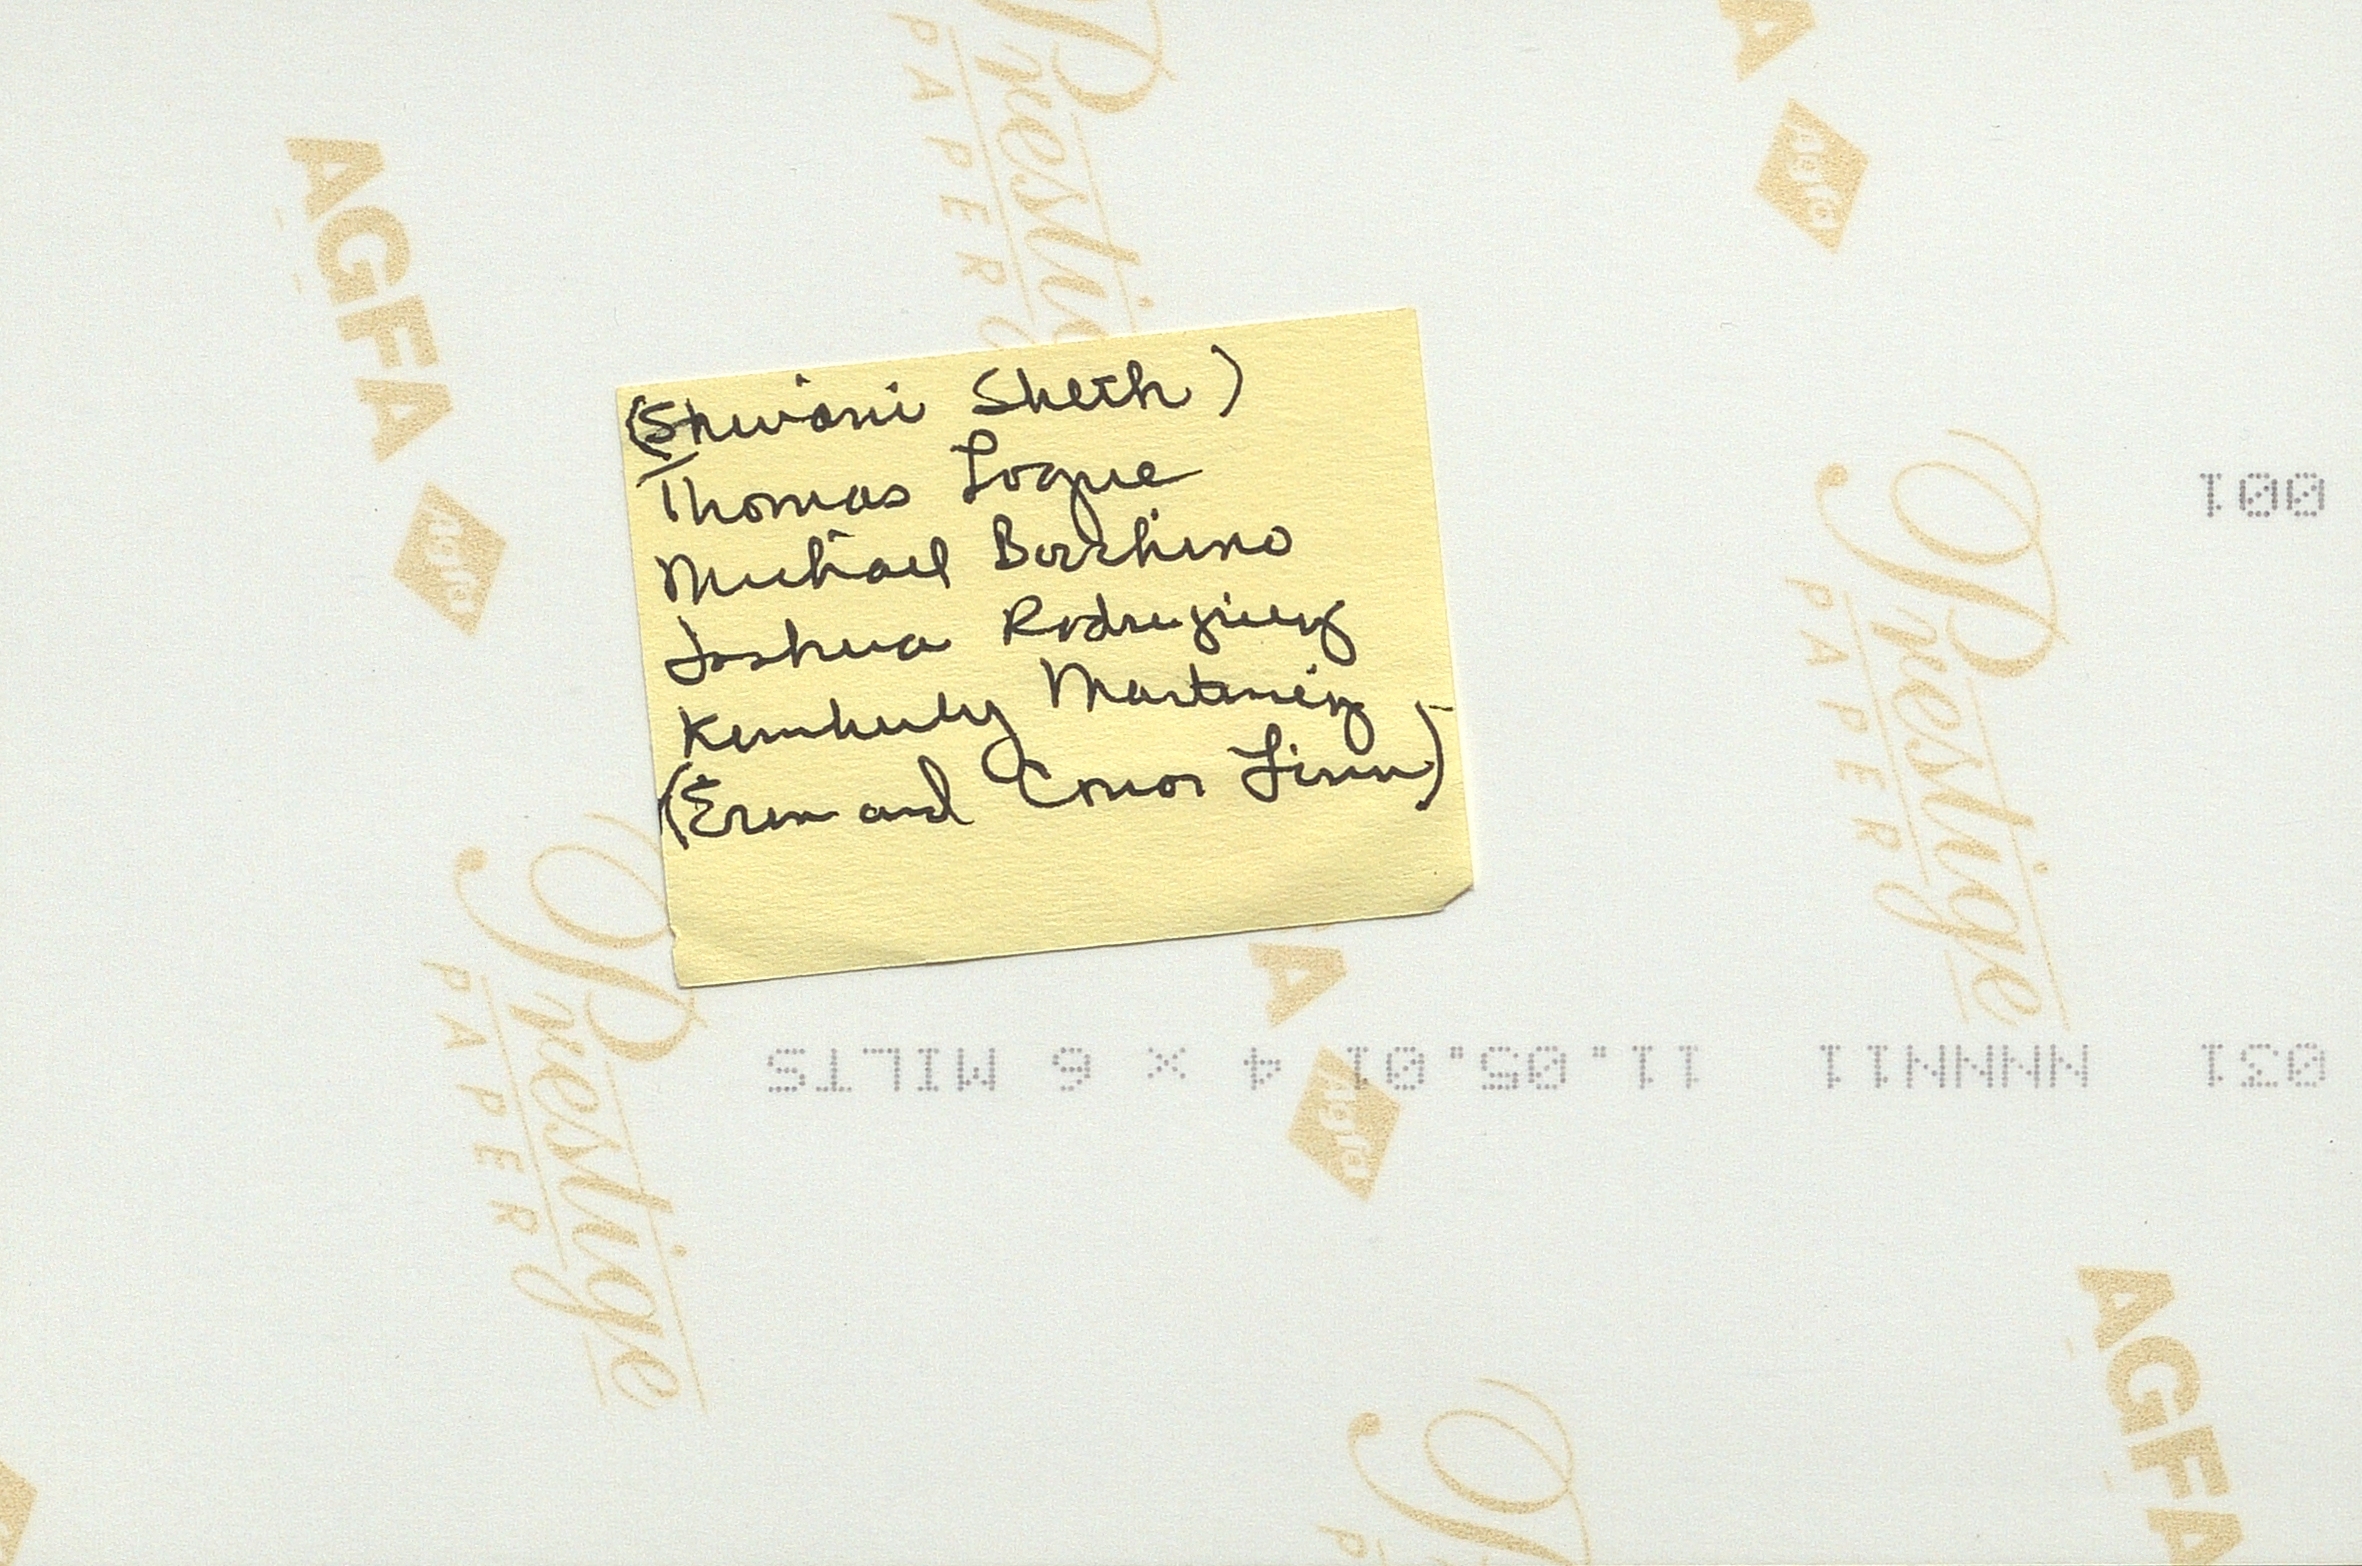 (Shivani Sheth)
Thomas Logue
Michael Bocchino
Joshua Rodriguez
Kimberly Martinez
(Erin and Conor Finn)
AGFA
Agfa
Prestige
PAPER
AGFA
Agfa
Prestige
PAPER
001
Prestige
PAPER
031 NNNN11 11.05.01 4 x 6 MILTS
Agfa
AGFA